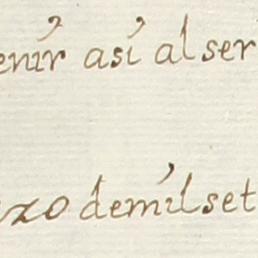 enir así al ser
zo de mil set